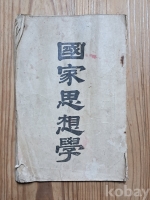 國家思想學
kobay